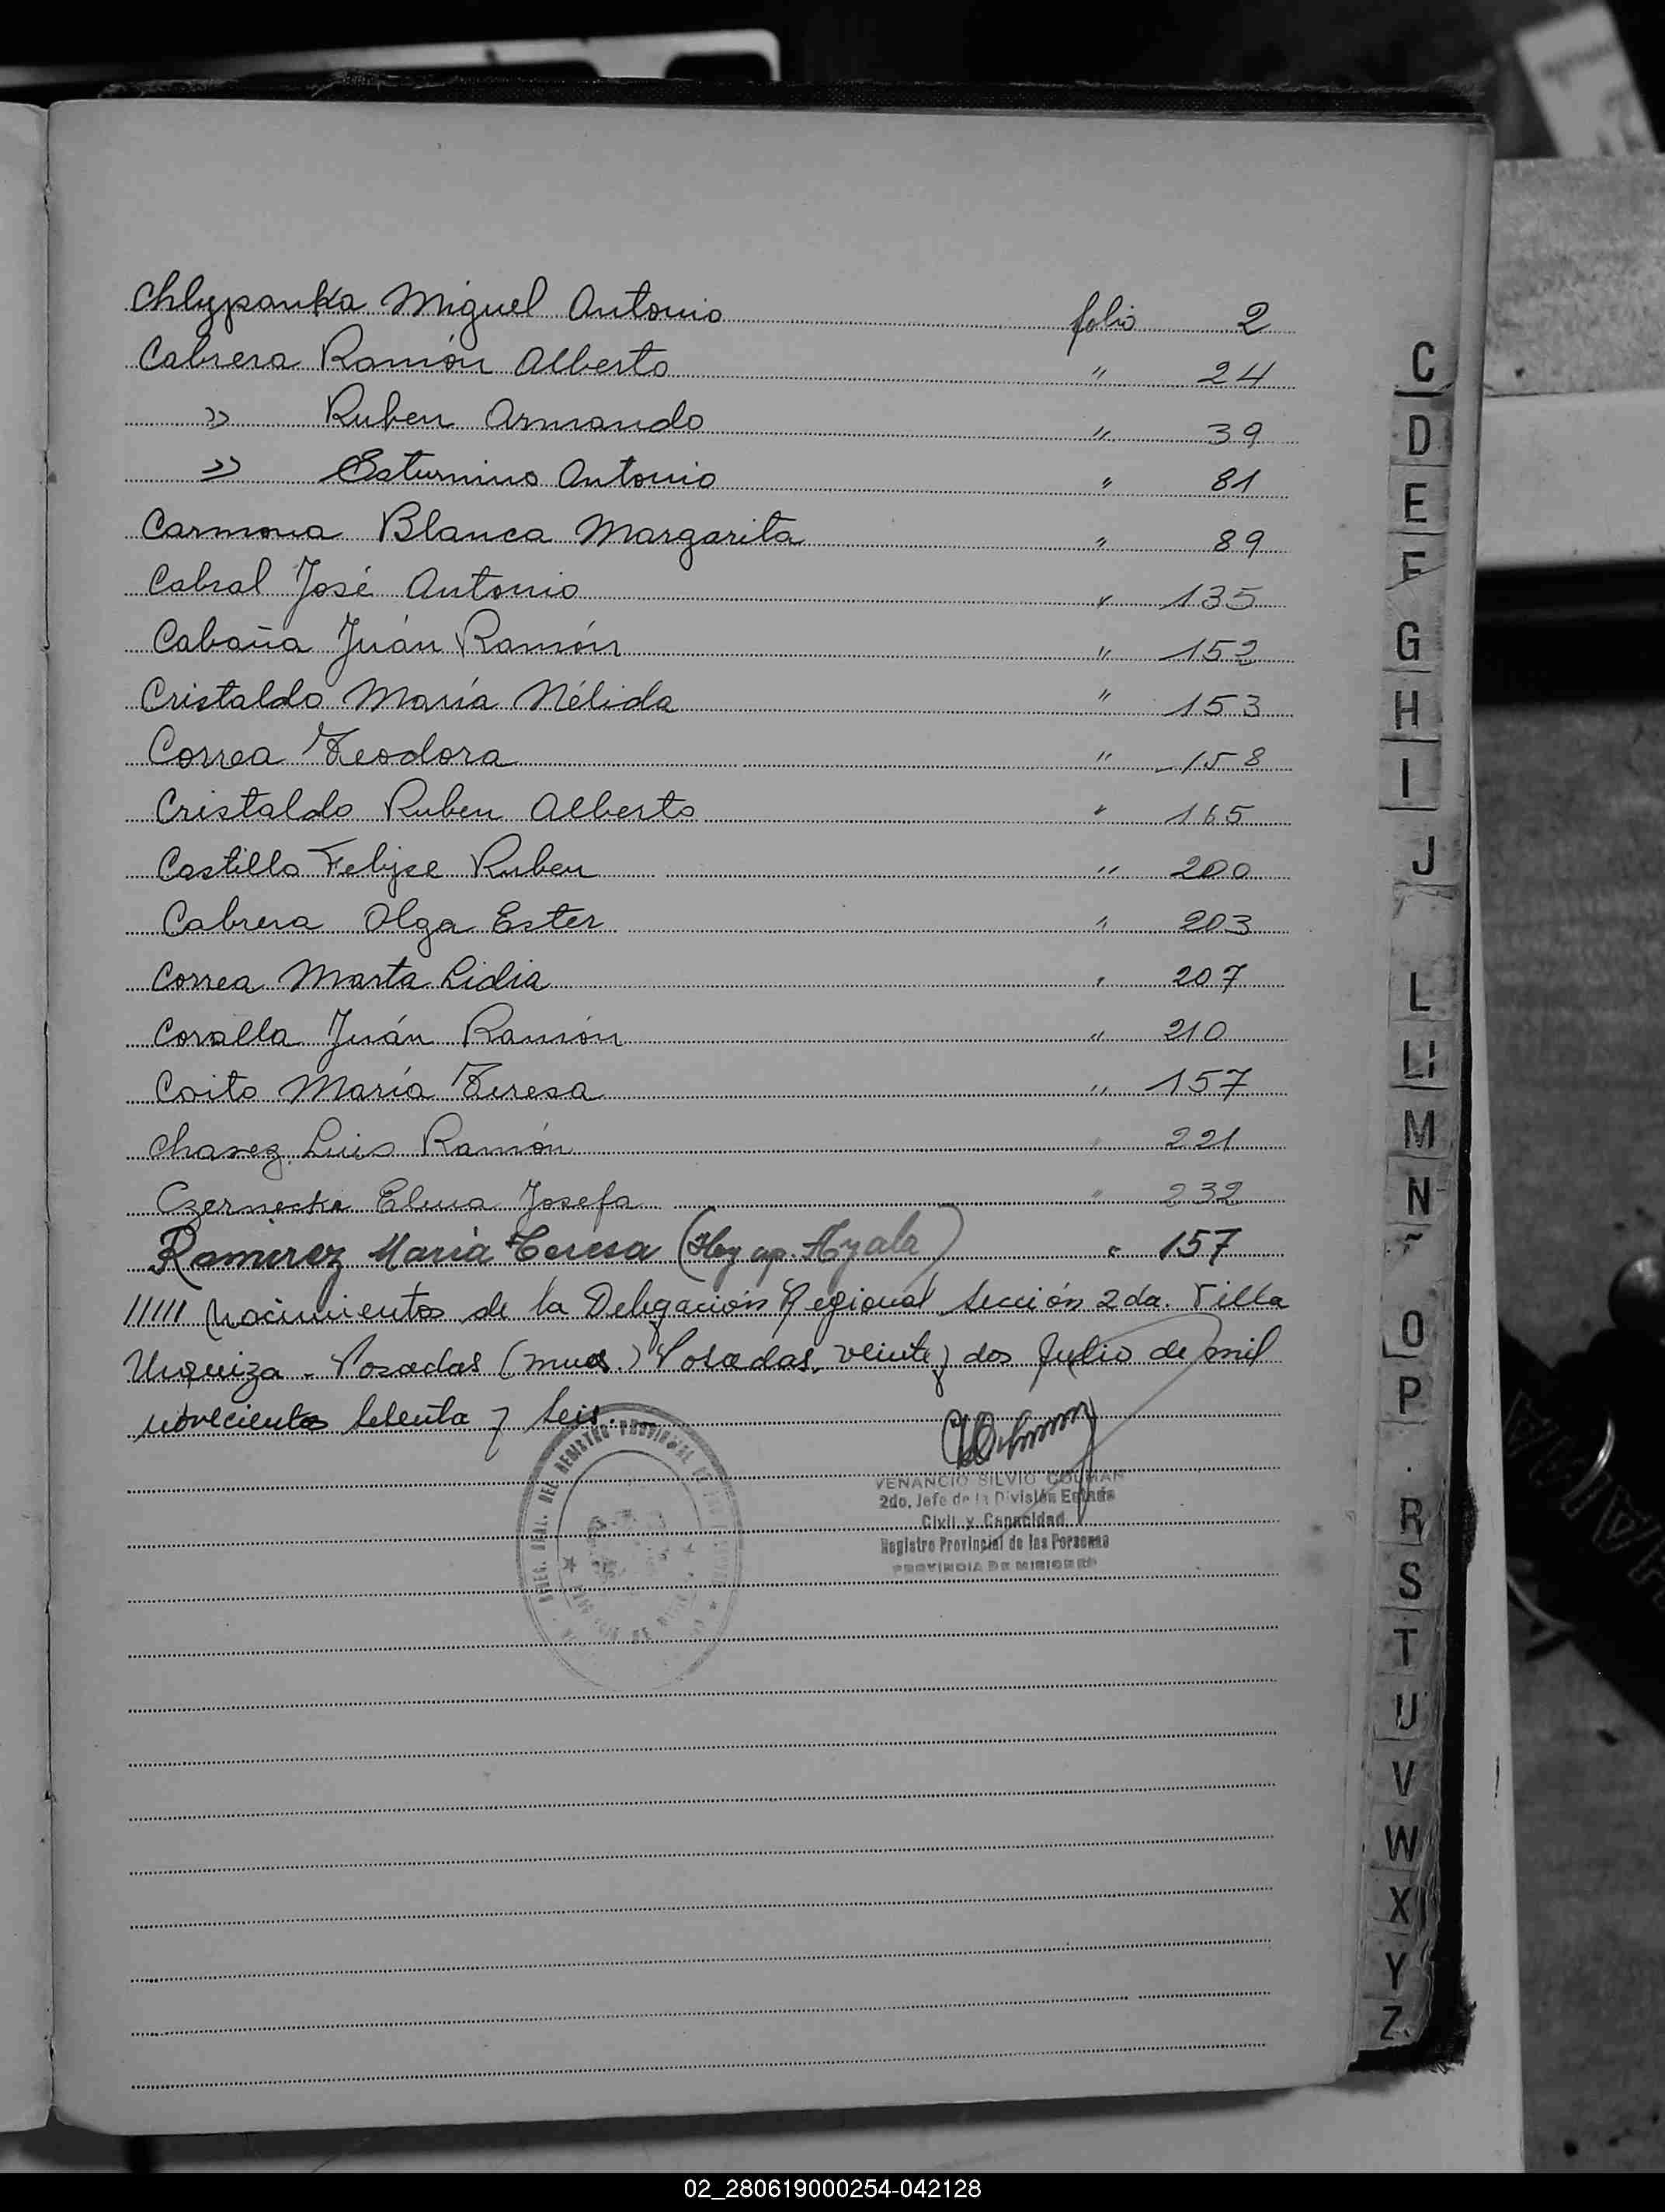 Chlypauka Miguel Antonio folio 2
Cabrera Ramón Alberto " 24
» Ruben Armando " 39
» Saturnino Antonio " 81
Carmona Blanca Margarita " 89
Cabral José Antonio " 135
Cabaña Juán Ramón " 152
Cristaldo María Nélida " 153
Correa Teodora " 158
Cristaldo Ruben Alberto " 165
Castillo Felipe Ruben " 200
Cabrera Olga Ester " 203
Correa Marta Lidia " 207
Coralla Juán Ramón " 210
Coito María Teresa " 157
Chavez Luis Ramón " 221
Czernecke Elena Josefa " 232
Ramirez María Teresa (Hoy ap. Ayala) " 157
///// Nacimientos de la Delegación Regional Sección 2da. Villa
Urquiza - Posadas (mnes.) Posadas, veinte y dos Julio de mil
novecientos setenta y seis.
VENANCIO SILVIO COLMAN
2do. Jefe de la División Estado
Civil y Capacidad
Registro Provincial de las Personas
PROVINCIA DE MISIONES
DEL REGISTRO PROVINCIAL DE
C
D
E
F
G
H
I
J
L
Ll
M
N
Ñ
O
P
R
S
T
U
V
W
X
Y
Z
02_280619000254-042128